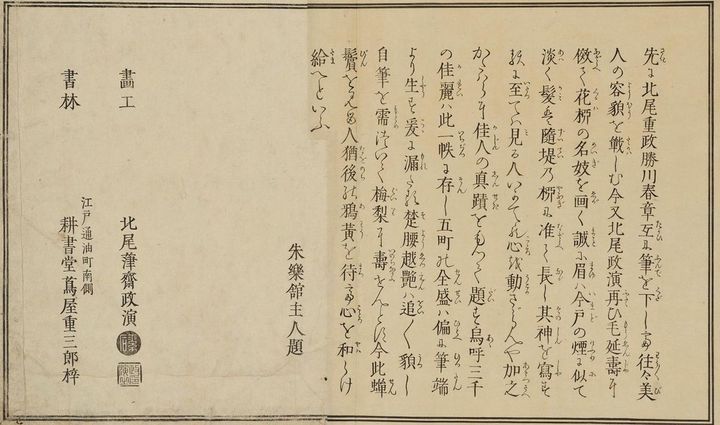 先に北尾重政勝川春章互に筆を下して往々美
人の容貌を戦しむ今又北尾政演再ひ毛延壽に
傚て花柳の名妓を画く誠に眉ハ今戸の煙に似て
淡く髪は隨堤乃柳に准て長し其神を寫す
に至てハ見る人いかてか心を動さゝらんや加之
かたはらに佳人の真蹟をもつて題す烏呼三千
の佳麗ハ此一帙に存し五町の全盛ハ偏に筆端
より生す爰に漏たる楚腰越艶ハ追て貌し
自筆を需 梅梨に壽せんとす今此蟬
鬢をみる人猶後の鴉黄を待て心を和らけ
給へといふ
朱樂館主人題
畫工 北尾葎齋政演
書林 江戸通油町南側
耕書堂蔦屋重三郎梓